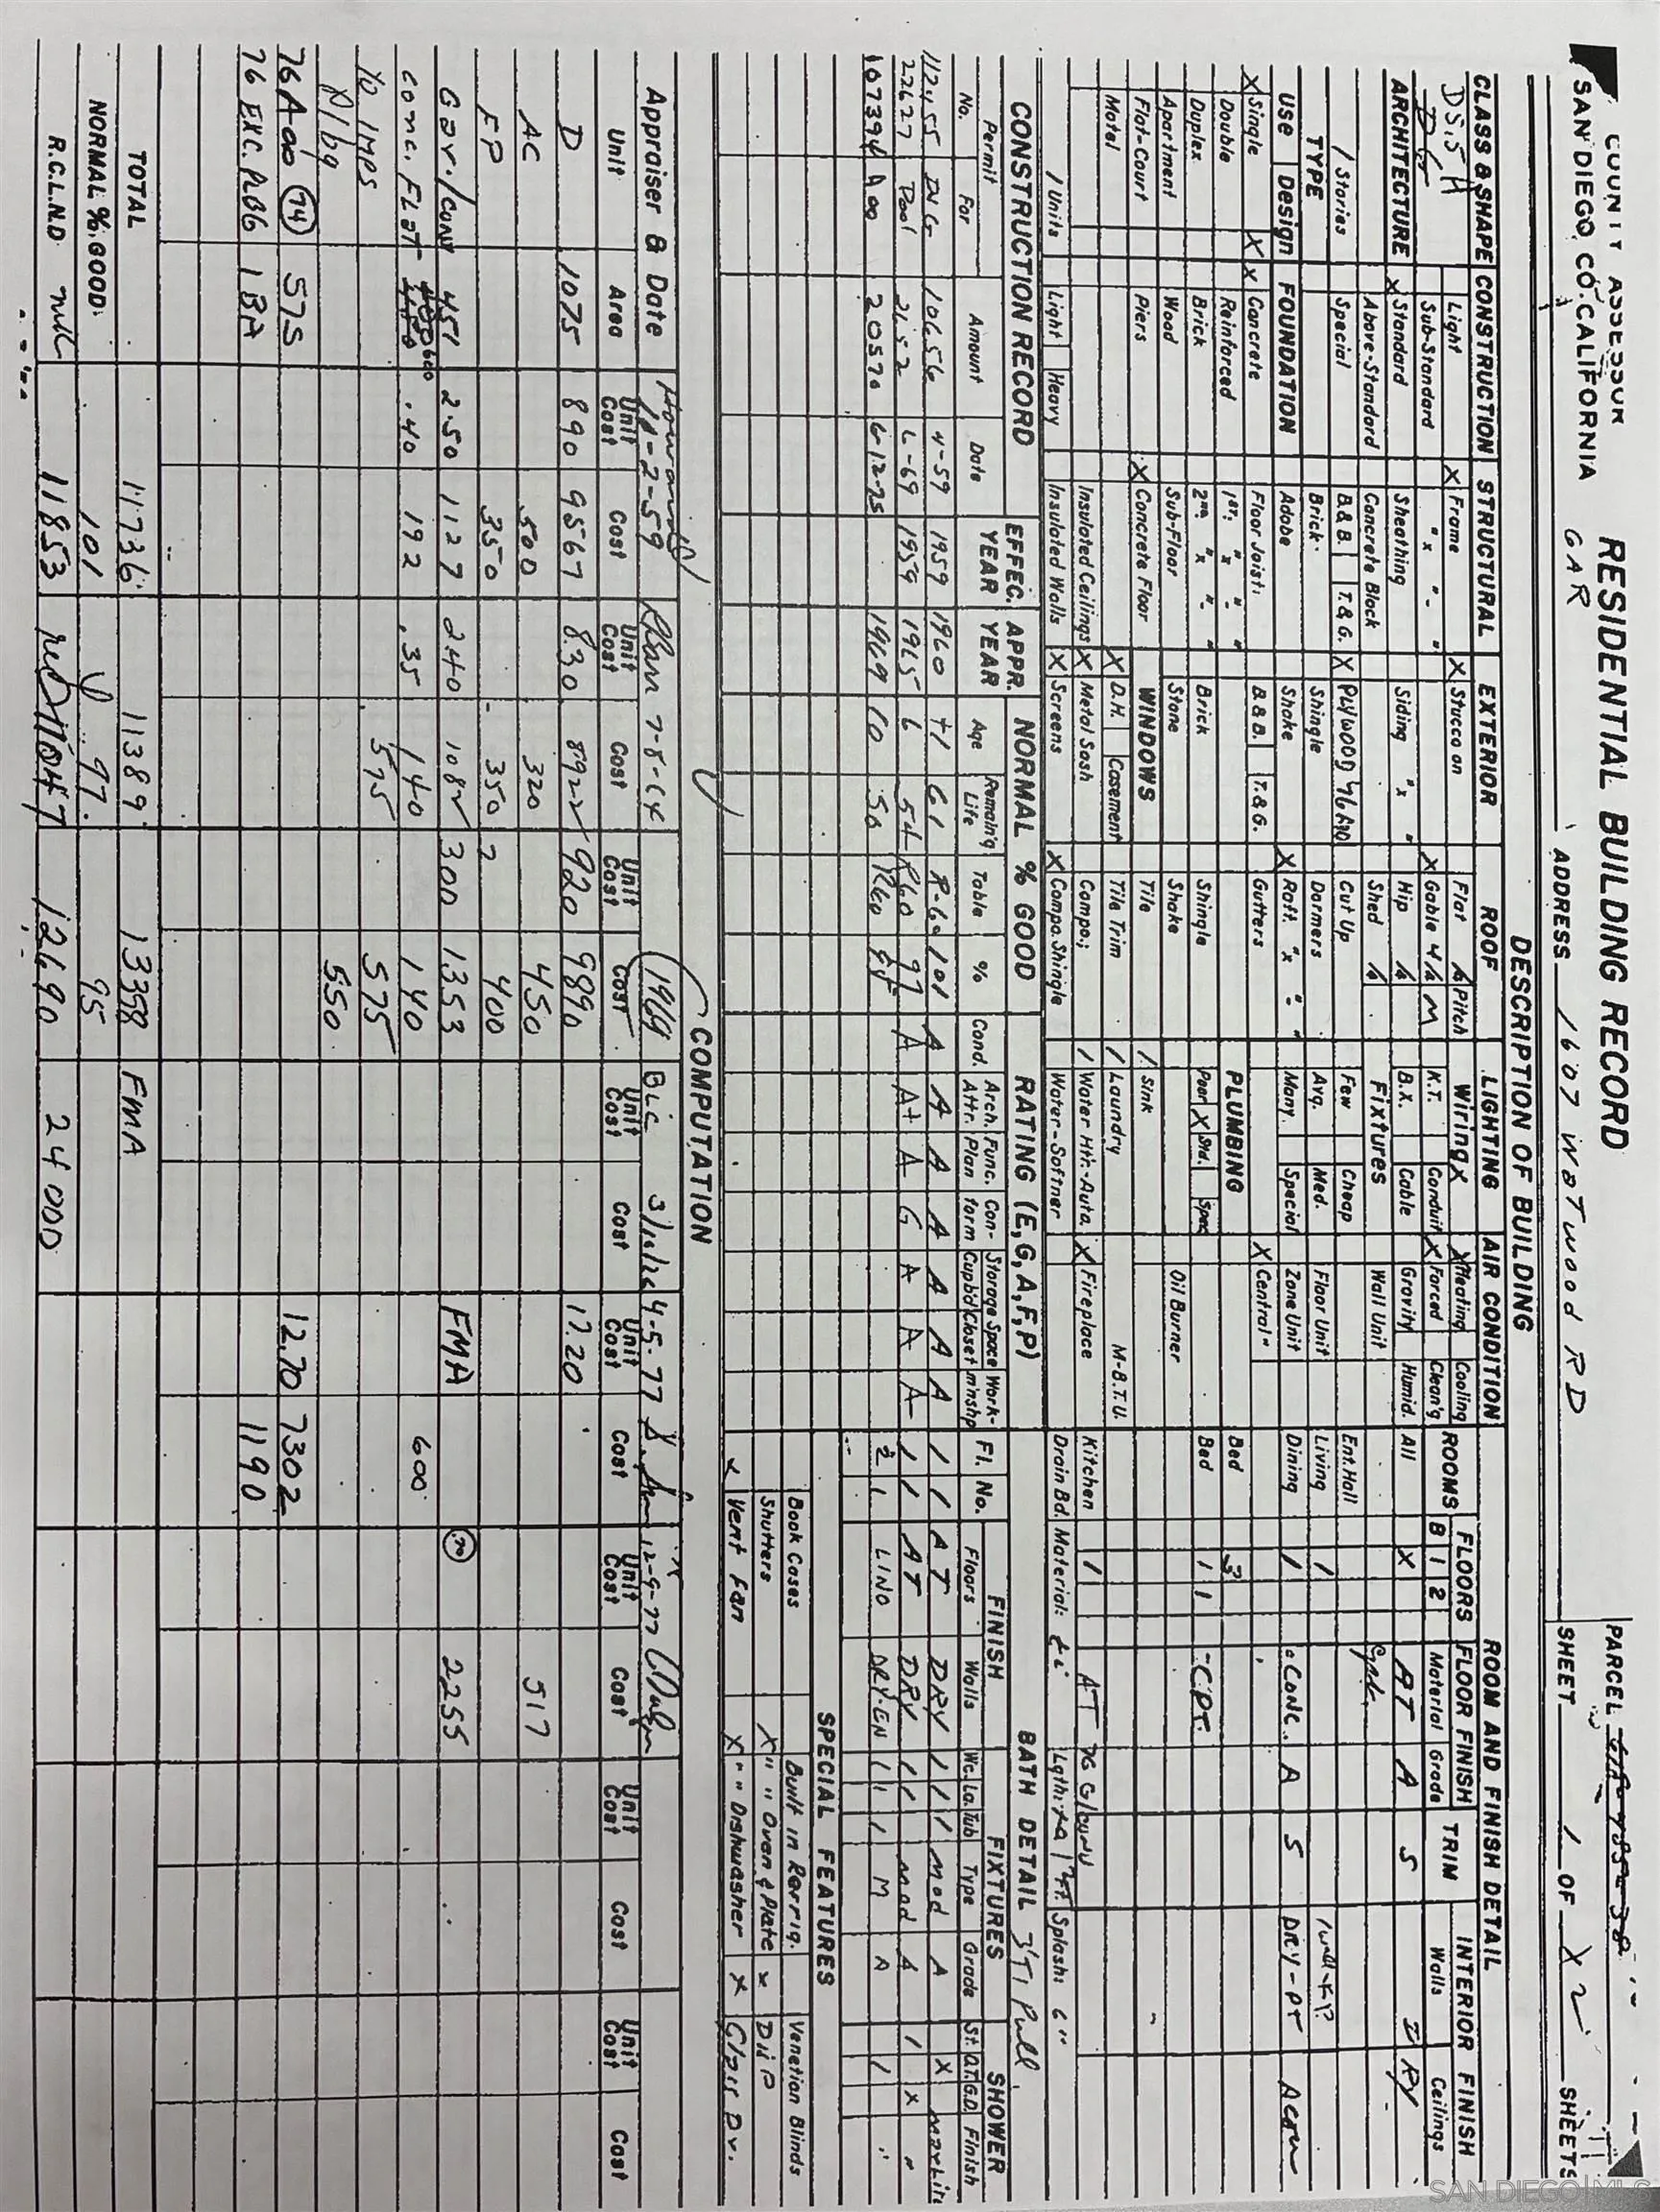 COUNTY ASSESSOR
SAN DIEGO CO. CALIFORNIA
RESIDENTIAL BUILDING RECORD
GAR
ADDRESS 1607 WETWOOD RD
PARCEL
SHEET 1 OF 2 SHEETS
DESCRIPTION OF BUILDING
CLASS & SHAPE
D5.5A
ARCHITECTURE
1 Stories
TYPE
USE Design
X Single X
Double
Duplex
Apartment
Flat-Court
Motel
1 Units
CONSTRUCTION
Light
Sub-Standard
X Standard
Above-Standard
Special
FOUNDATION
X Concrete
Reinforced
Brick
Wood
Piers
Light Heavy
STRUCTURAL
X Frame
" x " - "
Sheathing
Concrete Block
B.&B. T.&G.
Brick
Adobe
Floor Joist:
1st: " x " - "
2nd. " x " - "
Sub-Floor
X Concrete Floor
Insulated Ceilings
Insulated Walls
EXTERIOR
X Stucco on
Siding " x "
X PLYWOOD 76 Add
Shingle
Shake
B.&B. T.&G.
Brick
Stone
WINDOWS
X D.H. Casement
X Metal Sash
X Screens
ROOF
Flat Pitch
X Gable 4/12 M
Hip
Shed
Cut Up
Dormers
X Raft. " x " - "
Gutters
Shingle
Shake
Tile
Tile Trim
Compo.;
X Compo. Shingle
LIGHTING
Wiring
K.T. X Conduit
B.X. Cable
Fixtures
Few Cheap
Avg. Med.
Many Special
PLUMBING
Poor X Std. Spec
1 Sink
1 Laundry
1 Water Htr.-Auto.
Water-Softner
AIR CONDITION
X Heating Cooling
X Forced Clean'g
Gravity Humid.
Wall Unit
Floor Unit
Zone Unit
X Central
Oil Burner
M-B.T.U.
X Fireplace
ROOM AND FINISH DETAIL
ROOMS FLOORS FLOOR FINISH TRIM INTERIOR FINISH
B 1 2 Material Grade Walls Ceilings
All X AT A S DRY
Ent. Hall
Living 1
Dining 1 Conc. A S DRY-PT Acou
Bed 3
Bed 1 1 -CPT.
Kitchen 1 AT
Drain Bd. Material: Lgth: Ft. Splash: 6"
CONSTRUCTION RECORD
Permit
No. For Amount Date
EFFEC. YEAR APPR. YEAR
NORMAL % GOOD
Age Remain'g Life Table %
RATING (E,G,A,F,P)
Cond. Arch. Attr. Func. Plan Con-form Storage Space Cupbd Closet Work-m'nshp
112455 DWG 10656 4-59 1959 1960 +1 61 R-60 101 A A A A A A A
22627 Pool 2652 6-69 1959 1965 6 54 R60 97 A A+ A G A A A
107394 Add 20570 6-12-75 1969 10 50 R60
BATH DETAIL
FINISH FIXTURES SHOWER
Fl. No. Floors Walls Wc. La. Tub Type Grade St. O.T. G.D. Finish
1 1 AT DRY 1 1 1 Mod A X Marlite
1 1 AT DRY 1 1 Mod A 1 X "
2 1 LINO DRY-EN 1 1 1 M A 1
SPECIAL FEATURES
Book Cases Built in Refrig. Venetian Blinds
Shutters X " " Oven & Plate X Disp
X Vent Fan X " " Dishwasher X Glass Dr.
COMPUTATION
Appraiser & Date Howard 11-2-59 7-8-64 1969 BLC 4-5-77 12-9-77
Unit Area Unit Cost Cost Unit Cost Cost Unit Cost Cost Unit Cost Cost Unit Cost Cost Unit Cost Cost Unit Cost Cost Unit Cost Cost
D 1075 890 9567 8.30 8922 920 9890 17.20
AC 500 320 450 517
FP 350 350 400
Gar./conv 451 2.50 1127 240 1082 300 1353 FMA 2255
Conc. Flat .40 192 .35 140 140 600
Yd Imps 575 575
Plbg 550
76 Add (74) 575 12.70 7302
76 EXC. PLBG 1 BA 1190
TOTAL 11736 11389 13358 FMA
NORMAL % GOOD 101 97 95
R.C.L.N.D. 11853 11047 12690 24000
SAN DIEGO MLS